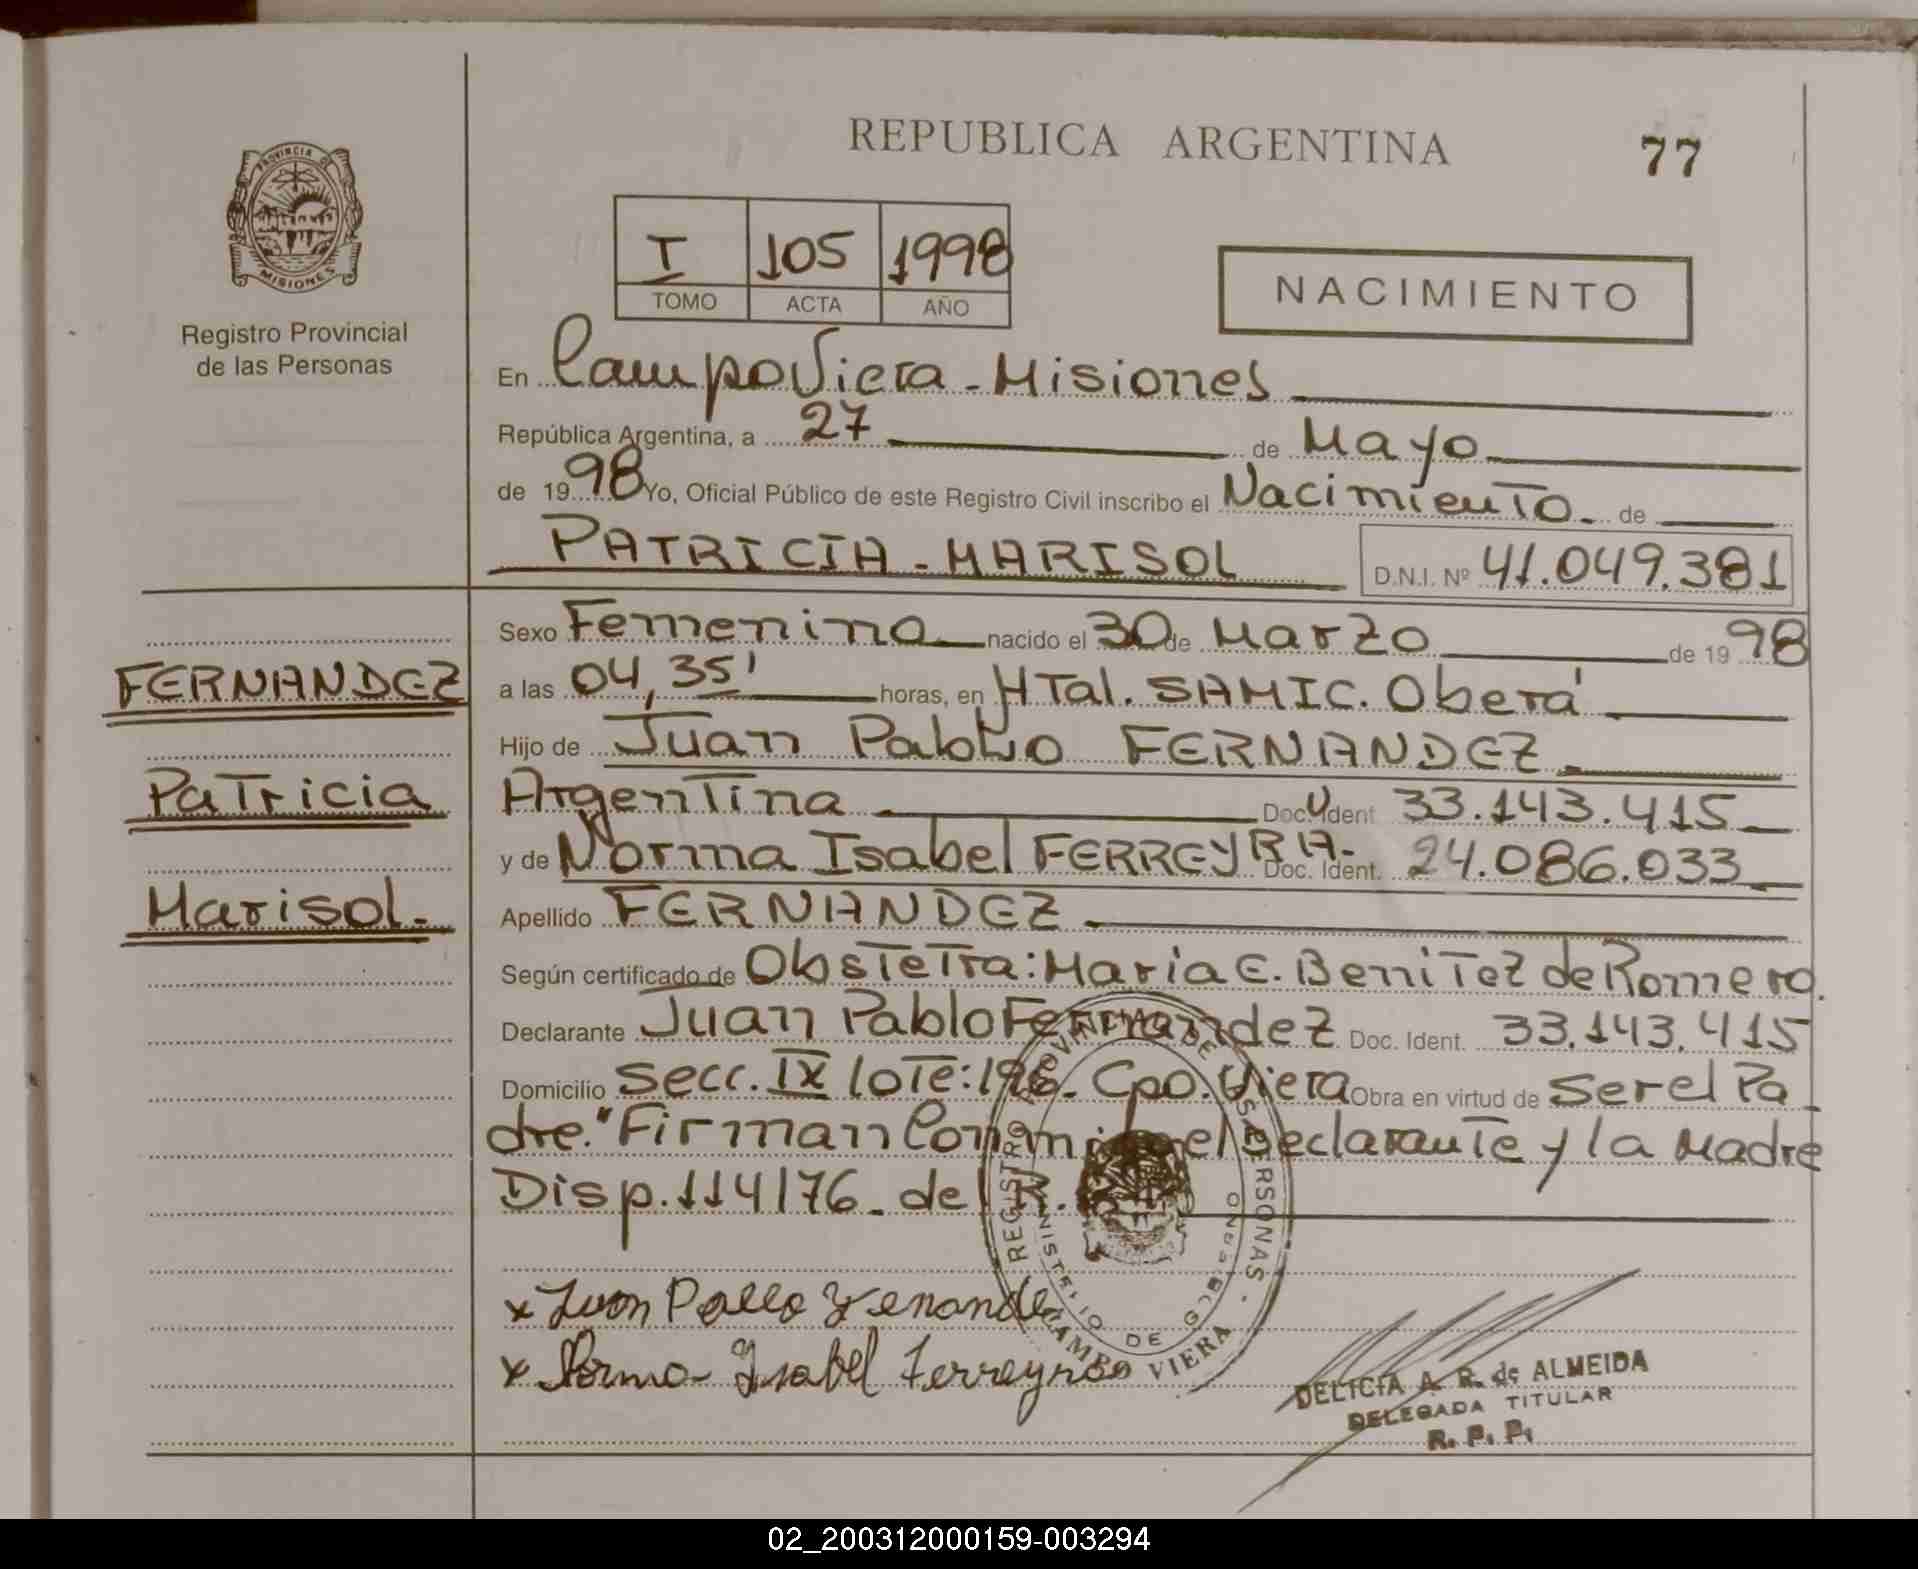 REPUBLICA ARGENTINA
77
PROVINCIA D
MISIONES
Registro Provincial
de las Personas
I 105 1998
TOMO ACTA AÑO
NACIMIENTO
En Campo Viera - Misiones
República Argentina, a 27 de Mayo
de 1998 Yo, Oficial Público de este Registro Civil inscribo el Nacimiento. de
PATRICIA - MARISOL D.N.I. Nº 41.049.381
Sexo Femenino nacido el 30 de Marzo de 1998
FERNANDEZ
a las 04,35' horas, en HTal. SAMIC. Oberá
Hijo de Juan Pablo FERNANDEZ
Patricia
Argentina Doc. Ident 33.143.415
y de Norma Isabel FERREYRA. Doc. Ident. 24.086.033
Marisol.
Apellido FERNANDEZ
Según certificado de Obstetra: Maria E. Benitez de Romero.
Declarante Juan Pablo Fernandez Doc. Ident. 33.143.415
Domicilio Secc. IX lote: Cpo. Viera Obra en virtud de Ser el Pa
dre." Firman Conmigo el Declarante y la Madre
Disp. 114/76 - del R.
REGISTRO PROVINCIAL DE LAS PERSONAS
MINISTERIO DE GOBIERNO
CAMPO VIERA
x Juan Pallo Fenande
x Norma Isabel Ferreyra
DELICIA A. R. de ALMEIDA
DELEGADA TITULAR
R. P. P.
02_200312000159-003294